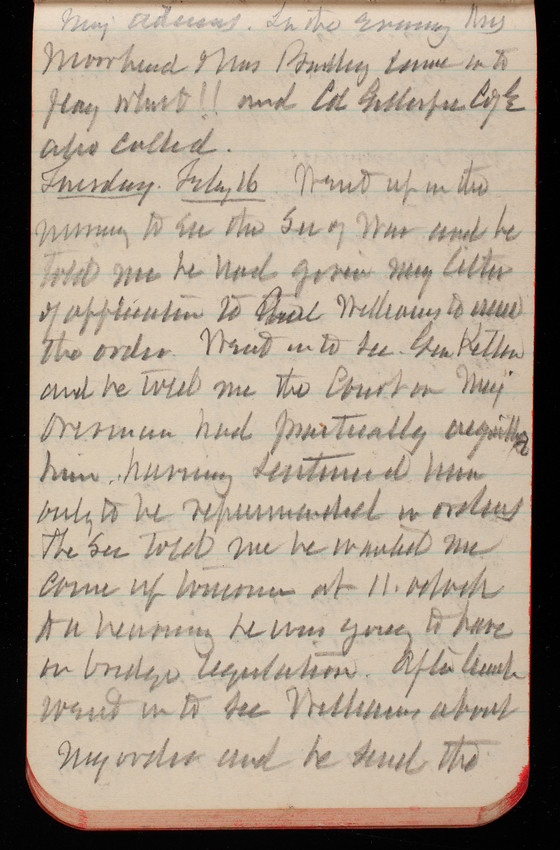 Maj Adams. In the evening Mrs
Moorhead & Mrs Bradley came in to
play whist!! and Col Gillespie C of E
also called.
Tuesday. Feby 16 Went up in the
morning to see the Sec of War and he
told me he had given my letter
of application to Williams to issue
the order. Went in to see Gen Kelton
and he told me the Court on Maj
had practically acquitted
him, having sentenced him
only to be reprimanded in orders
The Sec told me he wanted me
come up tomorrow at 11. oclock
to a hearing he was going to have
on bridge legislation. After lunch
went in to see Williams about
my order and he said the